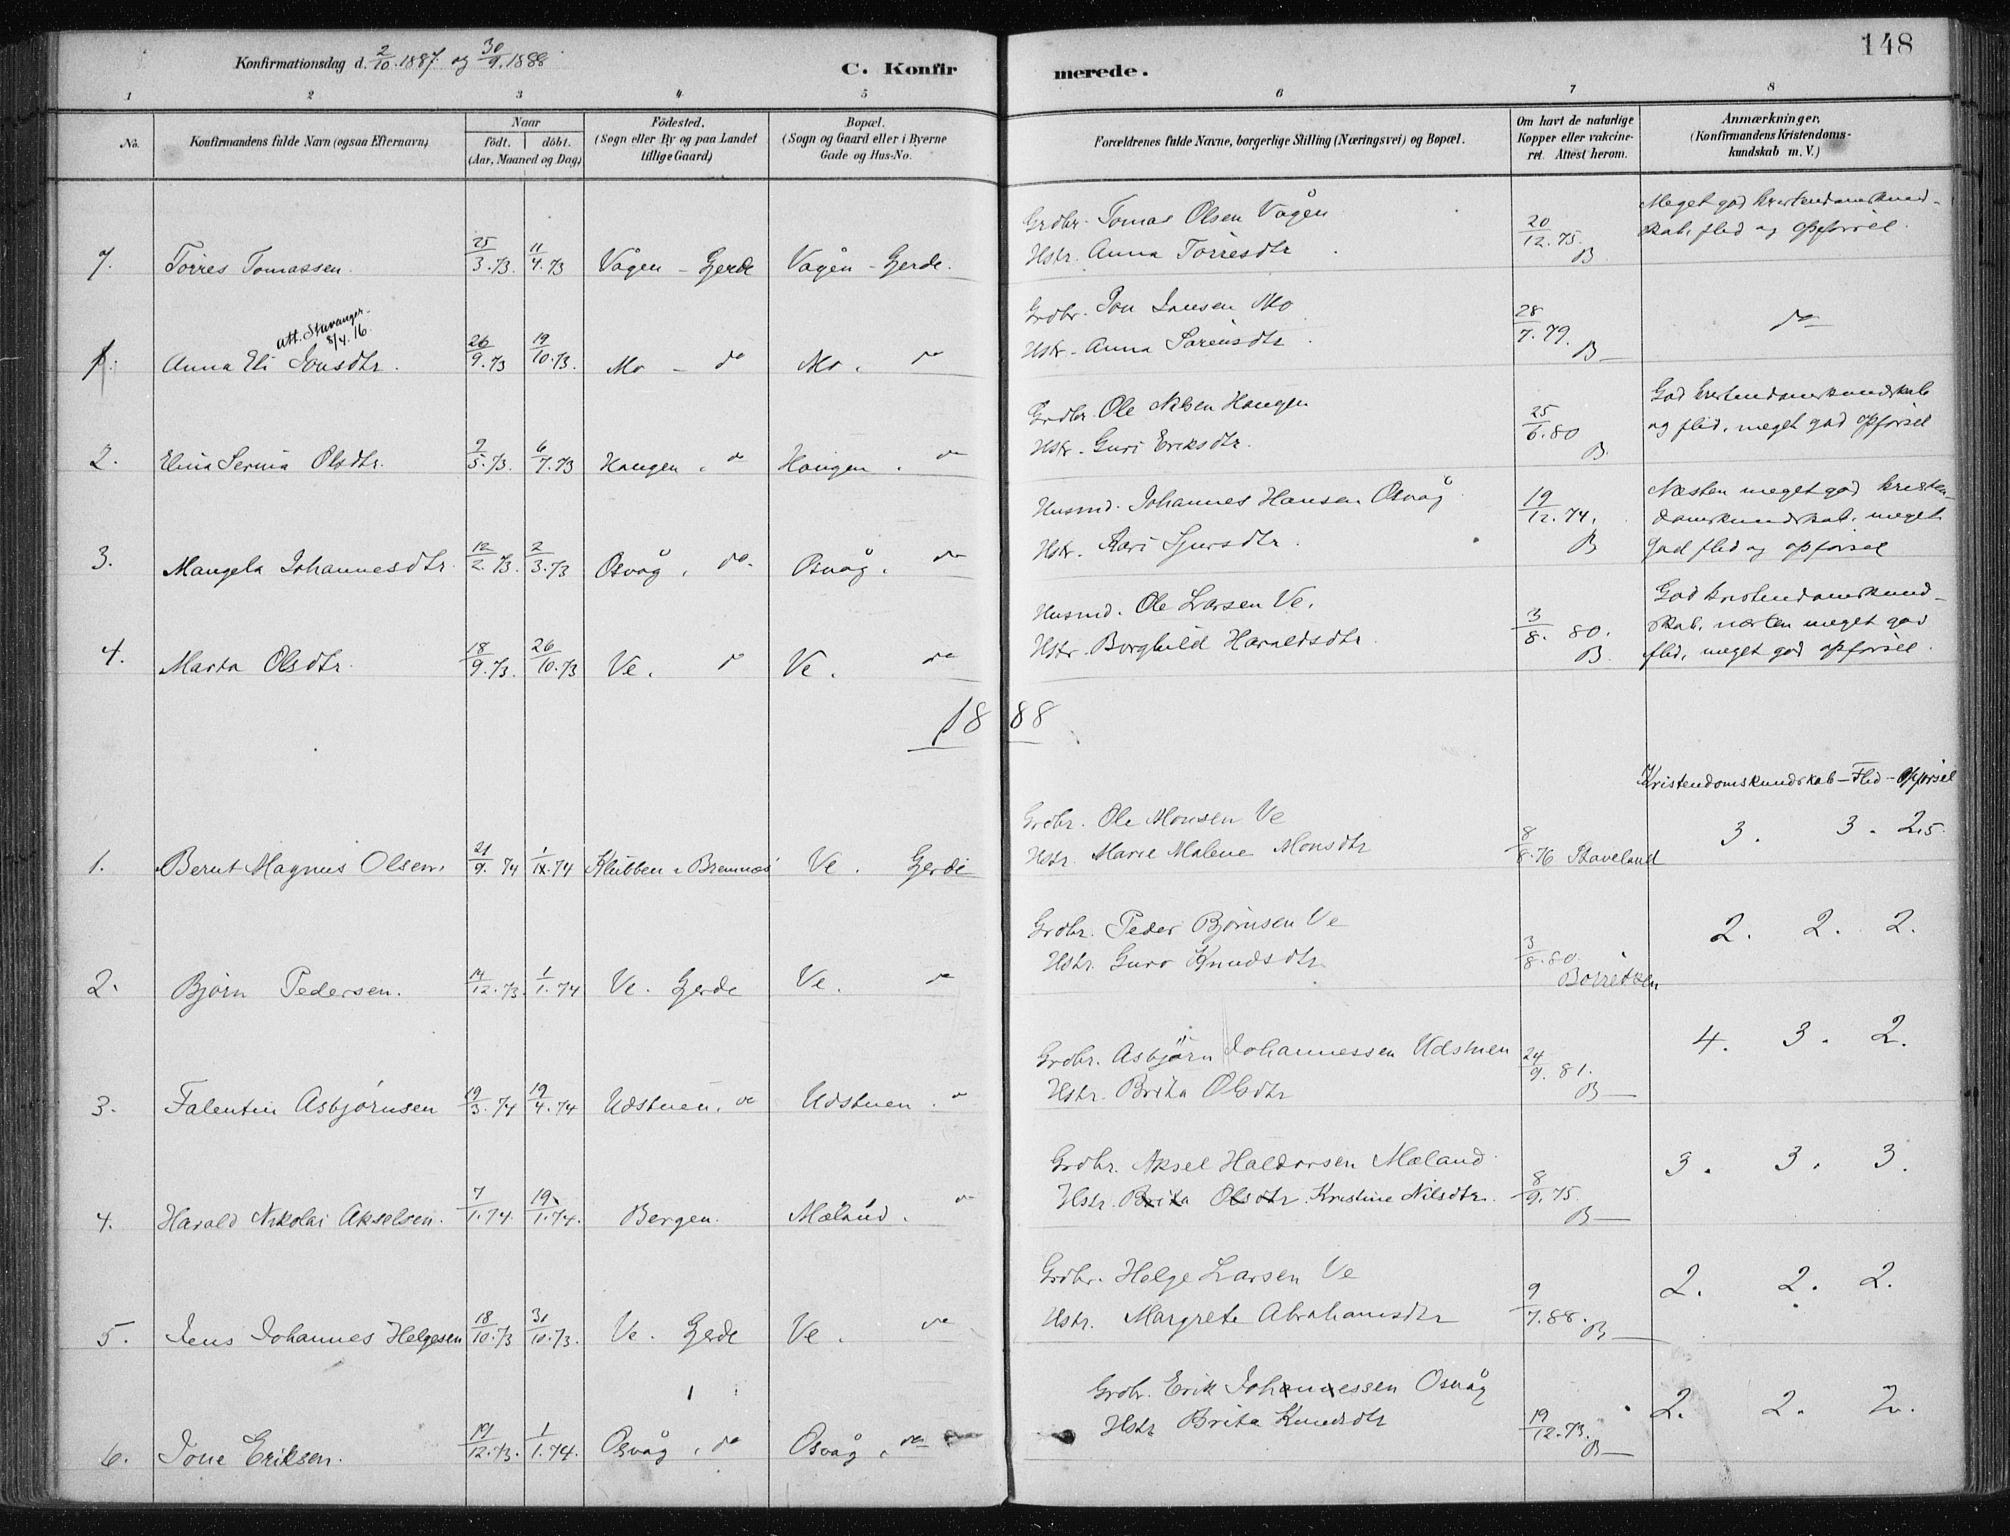 148
Konfirmationsdag d. 2/10. 1887. og 30/9. 1888
C. Konfirmerede.
1 2 3 4 5 6 7 8
No.
Konfirmandens fulde Navn (ogsaa Efternavn)
Naar
födt. döbt.
(Aar, Maaned og Dag)
Födested.
(Sogn eller By og paa Landet
tillige Gaard)
Bopæl.
(Sogn og Gaard eller i Byerne
Gade og Hus-No.
Forældrenes fulde Navne, borgerlige Stilling (Næringsvei) og Bopæl.
Om havt de naturlige
Kopper eller vakcine-
ret. Attest herom.
Anmærkninger.
(Konfirmandens Kristendoms-
kundskab m. V.)
7. Törres Tomassen. 25/3.73. 11/4.73 Vågen - Gerde Vågen - Gerde.
Grdbr. Tomas Olsen Vågen
Hstr. Anna Törresdtr
20/12.75. B
Meget god kristendomskund-
skab, flid og opförsel.
att. Stavanger
8/4.16.
1. Anna Eli Jonsdtr. 26/9.73 19/10.73. Mo - do Mo. do
Grdbr. Jon Jonsen Mo
Hstr. Anna Sörensdtr
28/7.79. B
do
2. Elina Serina Olsdtr. 2/5.73. 6/7.73 Haugen, do Haugen. do
Grdbr. Ole Nilsen Haugen
Hstr. Guri Eriksdtr.
25/6.80 B.
God kristendomskundskab
og flid, meget god opförsel
3. Mangela Johannesdtr. 12/2.73. 2/3.73 Osvåg, do. Osvåg, do
Husmd. Johannes Hansen Osvåg
Hstr. Kari Sjursdtr.
19/12.74. B
Næsten meget god kristen-
domskundskab, meget
god flid og opförsel
4. Marta Olsdtr. 18/9.73. 26/10.73 Ve. do Ve. do
Husmd. Ole Larsen Ve.
Hstr. Borghild Haraldsdtr.
3/8. 80. B.
God kristendomskund-
skab, næsten meget god
flid, meget god opförsel.
1888
Kristendomskundskab - Flid - Opførsel
1. Bernt Magnus Olsen. 21/9. 74 74 Klubben i Bremnæs Ve. Gerde
Grdbr. Ole Monsen Ve
Hstr. Marie Malene Monsdtr
8/8.76 Staveland
3. 3. 2,5.
2. Bjørn Pedersen. 14/12.73. 1/1.74 Ve. Gerde Ve. do
Grdbr. Peder Bjørnsen Ve
Hstr. Guro Knudsdtr
3/8.80.
2. 2. 2.
3. Falentin Asbjørnsen 19/3.74 19/4.74 Udstuen, do Udstuen. do
Grdbr. Asbjørn Johannessen Udstuen
Hstr. Brita Olsdtr
24/9.81. B
4. 3. 2.
4. Harald Nikolai Akselsen. 7/1.74. 19/1.74. Bergen. Mæland. do
Grdbr. Aksel Haldorsen Mæland
Hstr. Brita Olsdtr Kristine Nilsdtr.
8/9.75. B
3. 3. 3.
5. Jens Johannes Helgesen 18/10.73 31/10.73. Ve. Gerde Ve. do
Grdbr. Helge Larsen Ve
Hstr. Margrete Abrahamsdtr
9/7.88. B
2. 2. 2.
6. Jone Eriksen. 19/12.73. 1/1.74. Osvåg, do Osvåg, do
Grdbr. Erik Johannessen Osvåg
Hstr Brita Knudsdtr
19/12.73. B
2. 2. 2.